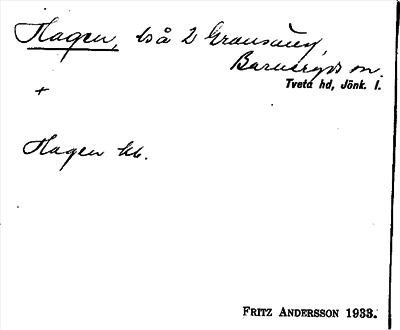 Hagen, bså 2 Gransäng,
Barnaryds sn.
Tveta hd, Jönk. l.
+
Hagen kb.
FRITZ ANDERSSON 1933.